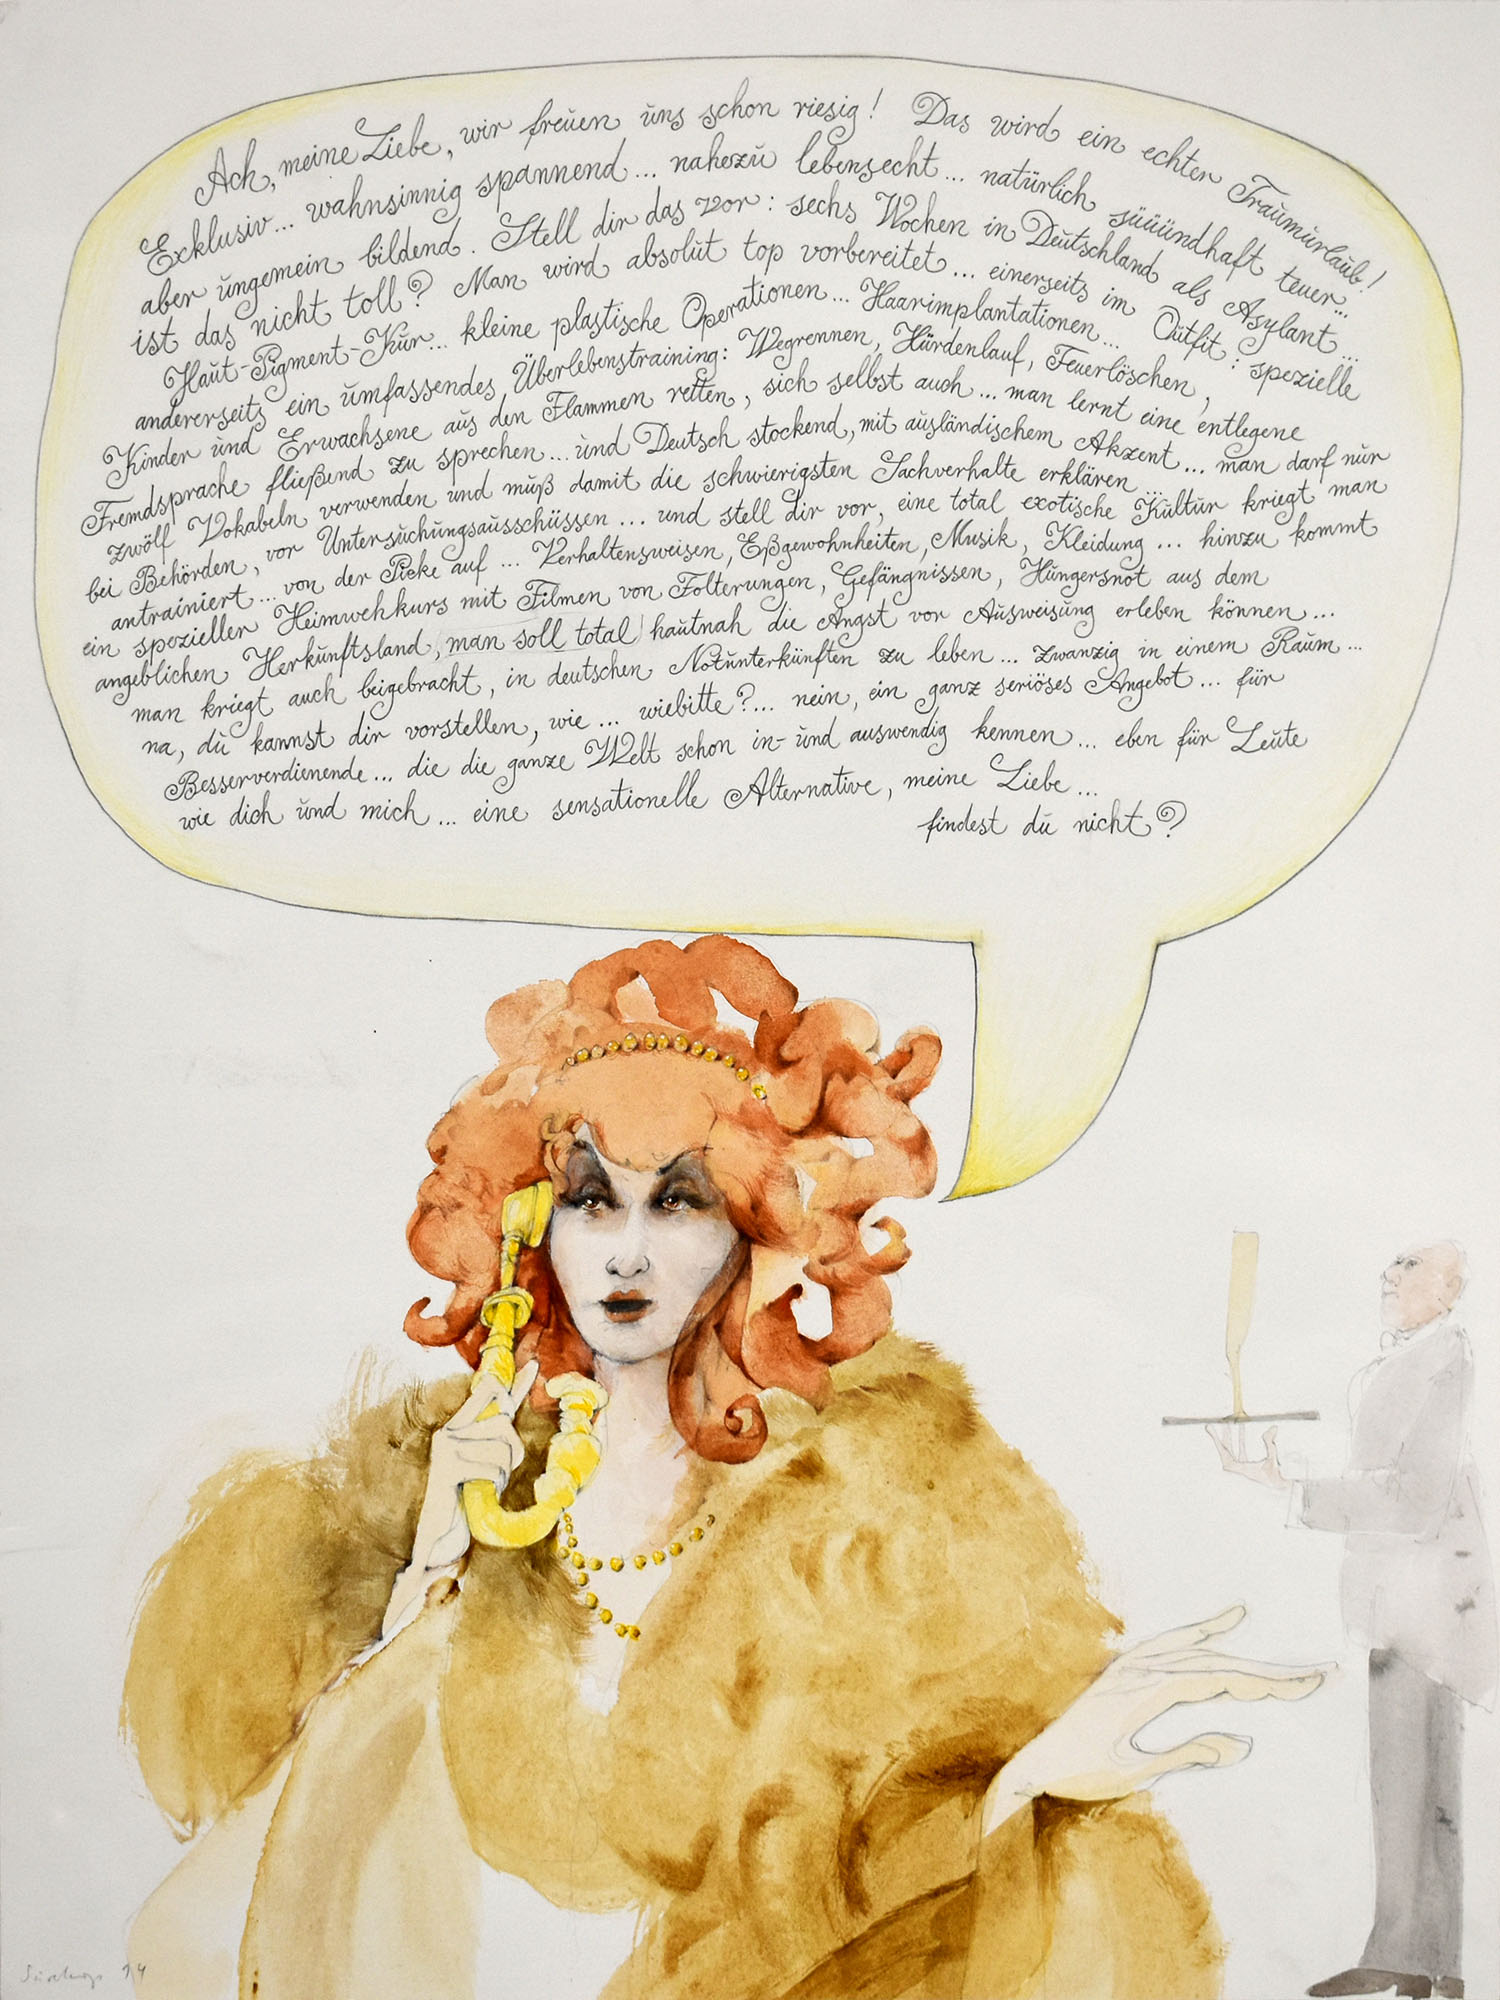 Ach, meine Liebe, wir freuen uns schon riesig! Das wird ein echter Traumurlaub!
Exklusiv... wahnsinnig spannend... nahezu lebensecht... natürlich süüündhaft teuer...
aber ungemein bildend. Stell dir das vor: sechs Wochen in Deutschland als Asylant...
ist das nicht toll? Man wird absolut top vorbereitet... einerseits im Outfit: spezielle
Haut-Pigment-Kur... kleine plastische Operationen... Haarimplantationen...
andererseits ein umfassendes Überlebenstraining: Wegrennen, Hürdenlauf, Feuerlöschen,
Kinder und Erwachsene aus den Flammen retten, sich selbst auch... man lernt eine entlegene
Fremdsprache fließend zu sprechen... und Deutsch stockend, mit ausländischem Akzent... man darf nur
zwölf Vokabeln verwenden und muß damit die schwierigsten Sachverhalte erklären...
bei Behörden, vor Untersuchungsausschüssen... und stell dir vor, eine total exotische Kultur kriegt man
antrainiert... von der Pieke auf... Verhaltensweisen, Eßgewohnheiten, Musik, Kleidung... hinzu kommt
ein spezieller Heimwehkurs mit Filmen von Folterungen, Gefängnissen, Hungersnot aus dem
angeblichen Herkunftsland, man soll total hautnah die Angst vor Ausweisung erleben können...
man kriegt auch beigebracht, in deutschen Notunterkünften zu leben... zwanzig in einem Raum...
na, du kannst dir vorstellen, wie... wiebitte?... nein, ein ganz seriöses Angebot... für
Besserverdienende... die die ganze Welt schon in- und auswendig kennen... eben für Leute
wie dich und mich... eine sensationelle Alternative, meine Liebe...
findest du nicht?
94